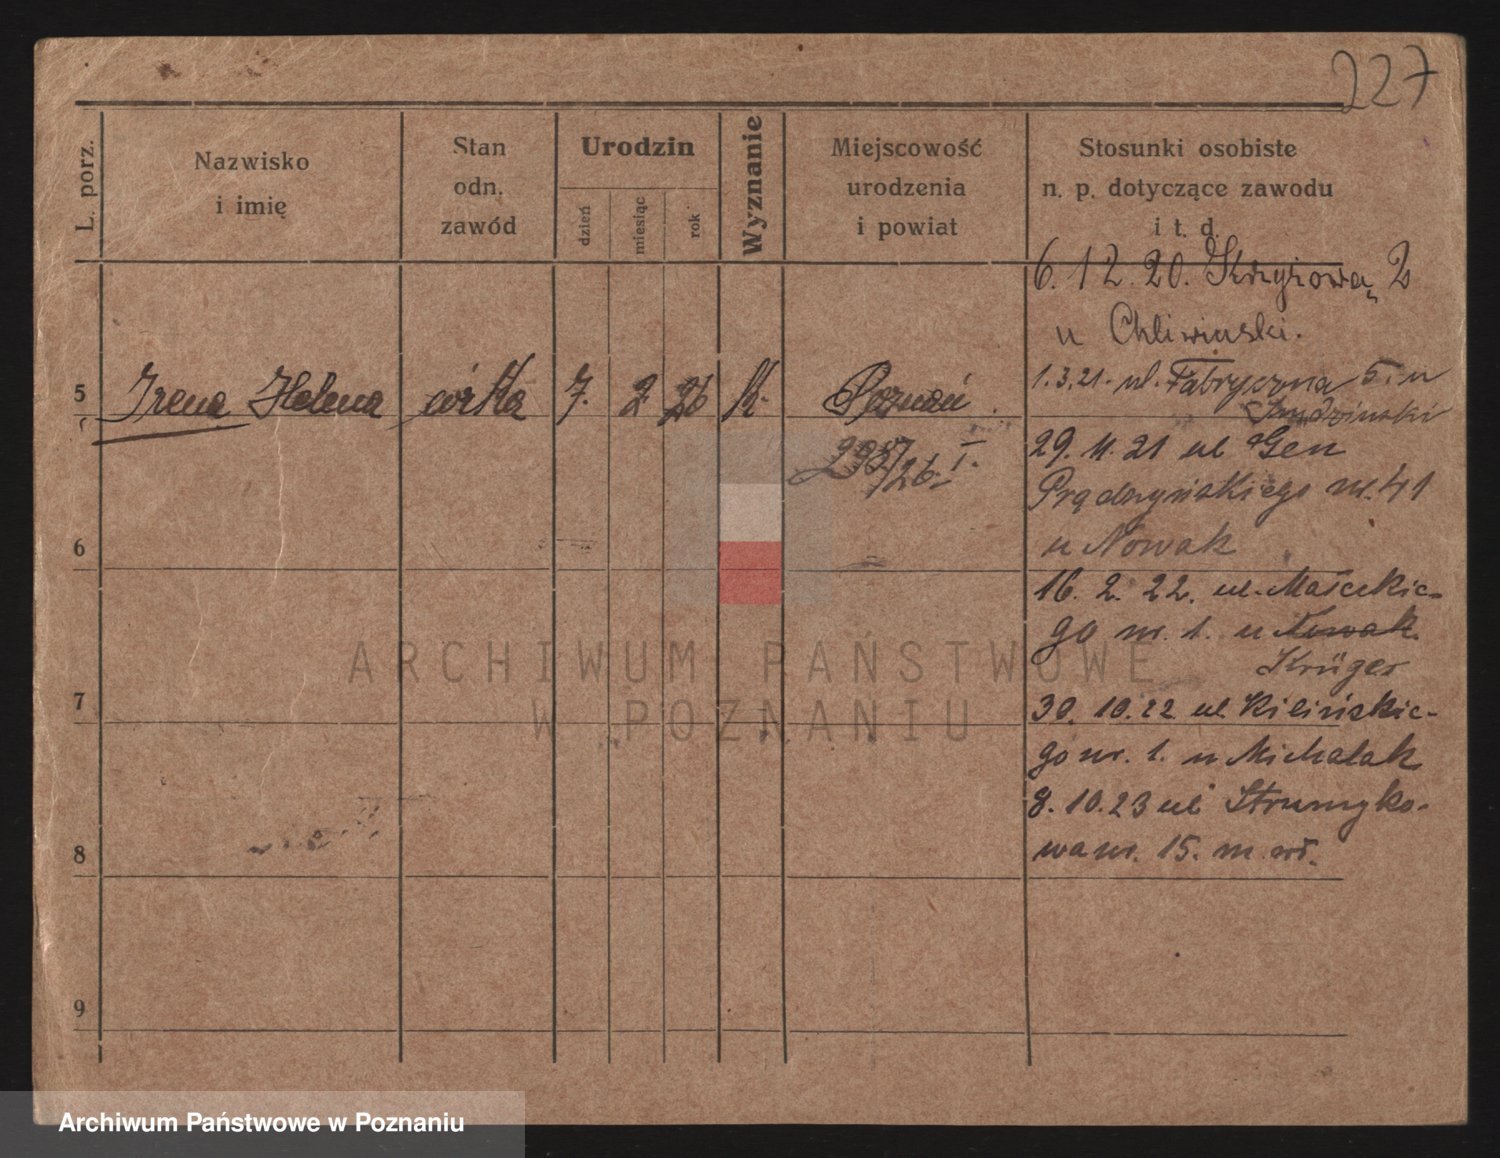 227
L. porz.
Nazwisko
i imię
Stan
odn.
zawód
Urodzin
dzień
miesiąc
rok
Wyznanie
Miejscowość
urodzenia
i powiat
Stosunki osobiste
n. p. dotyczące zawodu
i t. d.
6. 12. 20. Krzyżowa 2
u Chliwiński.
5 Irena Helena córka 7. 2 26 k. Poznań
1.3.21. ul. Fabryczna 5. u
/26. I.
29. 11. 21 ul Gen
Prądzyńskiego nr. 41
6
u Nowak
16. 2. 22. ul. Małeckie-
go nr. 1. u Nowak
Krüger
7
30. 10. 22 ul Kilińskie-
go nr. 1. u Michalak
8. 10. 23 ul Strumyko-
8
wa nr. 15. m. wł.
9
ARCHIWUM PAŃSTWOWE
W POZNANIU
Archiwum Państwowe w Poznaniu